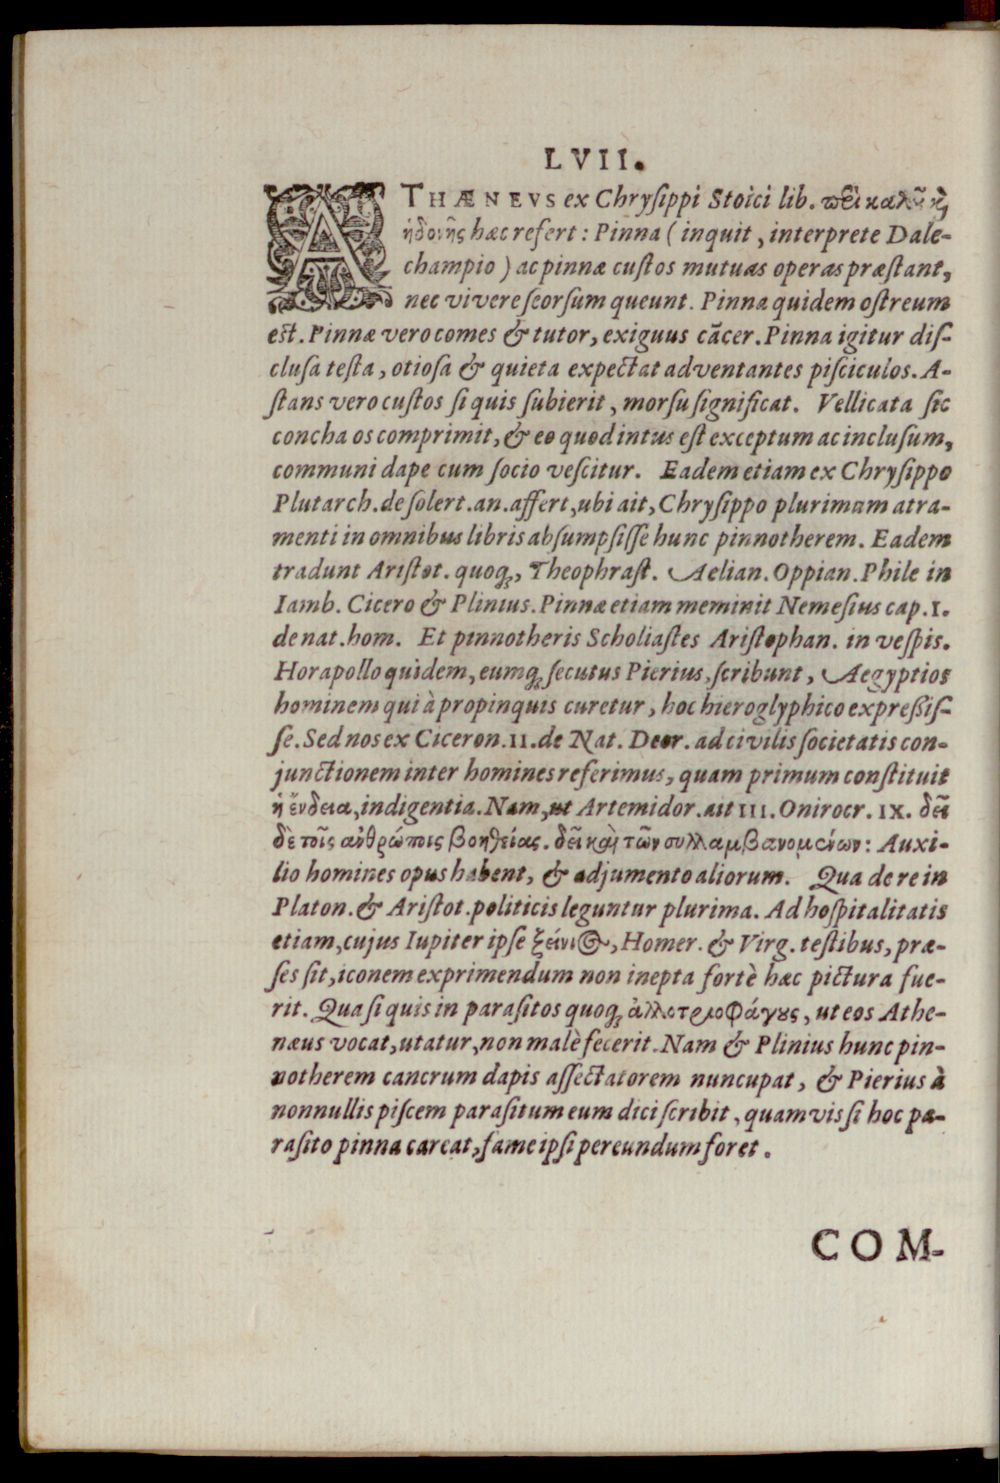 LVII.
ATHÆNEVS ex Chryſippi Stoici lib. περὶ καλοῦ κ̀
ἡδονῆς hæc refert: Pinna (inquit, interprete Dale-
champio) ac pinnæ cuſtos mutuas operas præſtant,
nec vivere ſeorſum queunt. Pinna quidem oſtreum
eſt. Pinnæ vero comes & tutor, exiguus cācer. Pinna igitur diſ-
cluſa teſta, otioſa & quieta expectat adventantes piſciculos. A-
ſtans vero cuſtos ſi quis ſubierit, morſu ſignificat. Vellicata ſic
concha os comprimit, & eo quod intus eſt exceptum ac incluſum,
communi dape cum ſocio veſcitur. Eadem etiam ex Chryſippo
Plutarch. de ſolert. an. affert, ubi ait, Chryſippo plurimum atra-
menti in omnibus libris abſumpſiſſe hunc pinnotherem. Eadem
tradunt Ariſtot. quoq;, Theophraſt. Aelian. Oppian. Phile in
Iamb. Cicero & Plinius. Pinnæ etiam meminit Nemeſius cap. I.
de nat. hom. Et pinnotheris Scholiaſtes Ariſtophan. in veſpis.
Horapollo quidem, eumq; ſecutus Pierius, ſcribunt, Aegyptios
hominem qui à propinquis curetur, hoc hieroglyphico expreßiſ-
ſe. Sed nos ex Ciceron. II. de Nat. Deor. ad civilis ſocietatis con-
junctionem inter homines referimus, quam primum conſtituit
ἡ ἔνδεια, indigentia. Nam, ut Artemidor. ait III. Onirocr. IX. δεῖ
δὲ τοῖς ἀνθρώποις βοηθείας. δεῖ καὶ τῶν συλλαμβανομένων: Auxi-
lio homines opus habent, & adjumento aliorum. Qua de re in
Platon. & Ariſtot. politicis leguntur plurima. Ad hoſpitalitatis
etiam, cujus Iupiter ipſe ξείνιος, Homer. & Virg. teſtibus, præ-
ſes ſit, iconem exprimendum non inepta fortè hæc pictura fue-
rit. Qua ſi quis in paraſitos quoq; ἀλλοτριοφάγους, ut eos Athe-
næus vocat, utatur, non malè fecerit. Nam & Plinius hunc pin-
notherem cancrum dapis aſſectatorem nuncupat, & Pierius à
nonnullis piſcem paraſitum eum dici ſcribit, quamvis ſi hoc pa-
raſito pinna careat, fame ipſi pereundum foret.
COM-